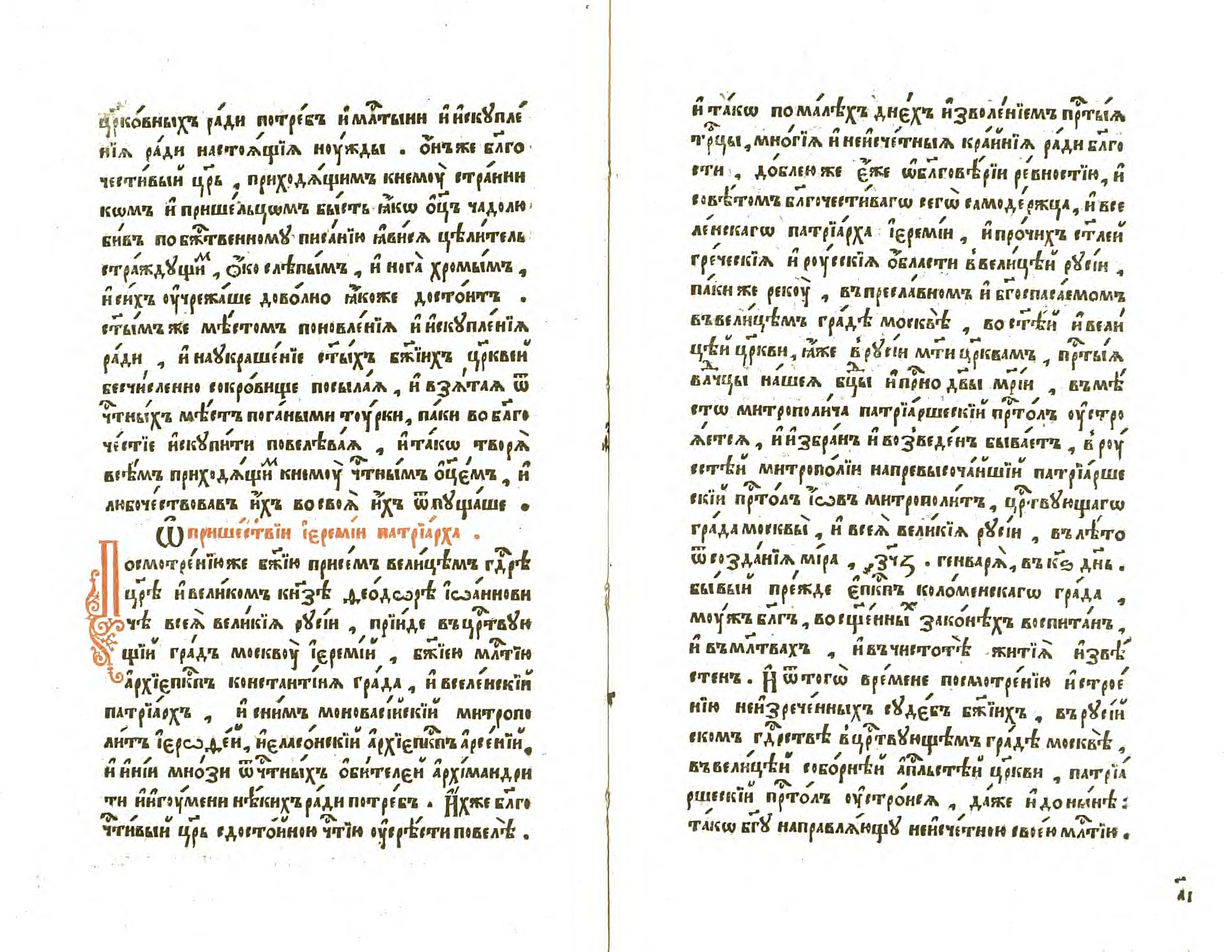 црко́вныхъ ра́ди потре́бъ и҆ мл҃тыни и҆ и҆скꙋпле́
нїѧ ра́ди настоѧ́щїѧ ноу́жды . Ѻ҆́нъ же бл҃го
чести́вый цр҃ь , приходѧ́щимъ к немоу̀ стра́нни
кѡмъ и҆ прише́льцѡмъ бы́сть ꙗ҆́кѡ ѻ҆ц҃ъ чадолю
би́въ по бж҃твенномꙋ писа́нїю ꙗ҆ви́сѧ цѣли́тель
стра́ждꙋщиⷨ , ѻ҆́ко слѣпы́мъ , и҆ нога̀ хромы́мъ ,
и҆ си́хъ оу҆чрежа́ше дово́лно ꙗ҆́коже досто́итъ .
ст҃ы́мъ же мѣ́стомъ поновле́нїѧ и҆ и҆скꙋпле́нїѧ
ра́ди , и҆ на ᲂукраше́нїе ст҃ы́хъ бж҃їихъ цр҃кве́й
бесчи́сленно сокро́вище посыла́ѧ , и҆ взѧ́таѧ ѿ
чⷭ҇тны́хъ мѣ́стъ пога́ными тоу́рки, па́ки во бл҃го
че́стїе и҆скꙋпи́ти повелѣва́ѧ , и҆ та́кѡ творѧ̀
всѣ́мъ приходѧ́щиⷨ к немоу̀ чⷭ҇тны́мъ ѻ҆ц҃е́мъ , и҆
любочествова́въ и҆̀хъ во своѧ̀ и҆̀хъ ѿпꙋща́ше .
Ѿ прише́ствїи і҆єремі́и патрїа́рха .
Посмотре́нїю же бж҃їю прїе́мъ вели́цѣмъ гдⷭ҇рѣ̀
цр҃ѣ̀ и҆ вели́комъ кнѧ́зѣ ѳео́дѡрѣ і҆ѡа́ннови
чѣ всеѧ̀ вели́кїѧ рꙋсі́и , прїи́де въ црⷭ҇твꙋю
щїй гра́дъ москвоу̀ і҆єремі́й , бж҃їею млⷭ҇тїю
а҆рхїєпⷭ҇кпъ константі́нѧ гра́да , и҆ вселе́нскїй
патрїа́рхъ , и҆ с ни́мъ моноваси́йскїй митропо
ли́тъ і҆єрѡѳе́й, и҆ єласо́нскїй а҆рхїєпⷭ҇кпъ а҆рсе́нїй,
и҆ и҆ні́и мно́зи ѿ чⷭ҇тны́хъ ѻ҆би́телєй а҆рхїмандри
ти и҆ и҆гоу́мени нѣ́кихъ ра́ди потре́бъ . И҆̀хже бл҃го
чⷭ҇ти́вый цр҃ь с досто́йною чⷭ҇тїю оу҆срѣ́сти повелѣ̀ .
и҆ та́кѡ по ма́лѣхъ дне́хъ и҆зволе́нїемъ прⷭ҇тыѧ
трⷪ҇цы, мно́гїѧ и҆ неи҆сче́тныѧ кра́йнїѧ ра́ди бл҃го
сти , до́блею же є҆́же ѡ҆ бл҃говѣ́рїи ре́вностїю, и҆
совѣ́томъ бл҃гочести́вагѡ сегѡ̀ самоде́ржца, и҆ все
ле́нскагѡ патрїа́рха і҆єремі́и , и҆ про́чихъ ст҃ле́й
гре́ческїѧ и҆ роу́сскїѧ ѻ҆́бласти в вели́цѣй рꙋсі́и ,
па́ки же рекоу̀ , въ пресла́вномъ и҆ бг҃оспаса́емомъ
въ вели́цѣмъ гра́дѣ москвѣ̀ , во ст҃ѣ́й и҆ вели́
цѣй цр҃кви, ꙗ҆́же в рꙋсі́и мт҃и цр҃квамъ , прⷭ҇тыѧ
влⷣчцы на́шеѧ бц҃ы и҆ прⷭ҇но дв҃ы мр҃і́и , въ мѣ́
сто митропо́лича патрїа́ршескїй прⷭ҇то́лъ оу҆стро
ѧ́етсѧ , и҆ и҆збра́нъ и҆ возведе́нъ быва́етъ , в роу́
сстѣй митропо́лїи на превысоча́йшїй патрїа́рше
скїй прⷭ҇то́лъ і҆́ѡвъ митрополи́тъ , црⷭ҇твꙋющагѡ
гра́да москвы̀ , и҆ всеѧ̀ вели́кїѧ рꙋсі́и , въ лѣ́то
ѿ созда́нїѧ мі́ра , ҂зчз . генварѧ̀, въ кѕ дн҃ь .
бы́вый пре́жде є҆пⷭ҇кпъ коло́менскагѡ гра́да ,
моу́жъ бл҃гъ, во сщ҃е́нныⷯ зако́нѣхъ воспита́нъ ,
и҆ въ мл҃твахъ , и҆ въ чистотѣ̀ житїѧ̀ и҆звѣ́
стенъ . И҆ ѿ тогѡ̀ вре́мене посмотре́нїю и҆ строе́
нїю неи҆зрече́нныхъ сꙋде́бъ бж҃їихъ , въ рꙋсі́й
скомъ гдⷭ҇рствѣ в црⷭ҇твꙋющѣмъ гра́дѣ москвѣ̀ ,
въ вели́цѣй собо́рнѣй а҆пⷭ҇льстѣй цр҃кви , патрїа́
ршескїй прⷭ҇то́лъ оу҆стро́исѧ , да́же и҆ до ны́нѣ :
та́кѡ бг҃ꙋ направлѧ́ющꙋ неи҆сче́тною свое́ю млⷭ҇тїю .
а҃і